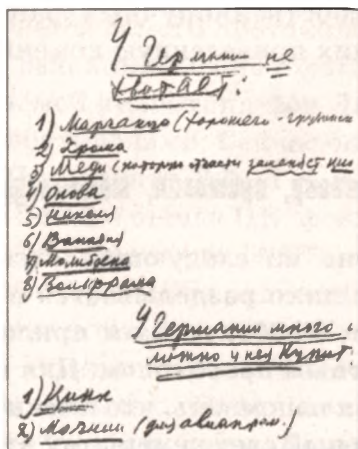 У Германии не
хватает:
1) Марганца (хорошего -
2) Хрома
3) Меди (которую отчасти заменяет цинк
4) Олова
5) Никеля
6) Ванадия
7) Молибдена
8) Вольфрама
У Германии много,
можно у нея купит:
1) Цинк
2) Магний (для авиапром.)